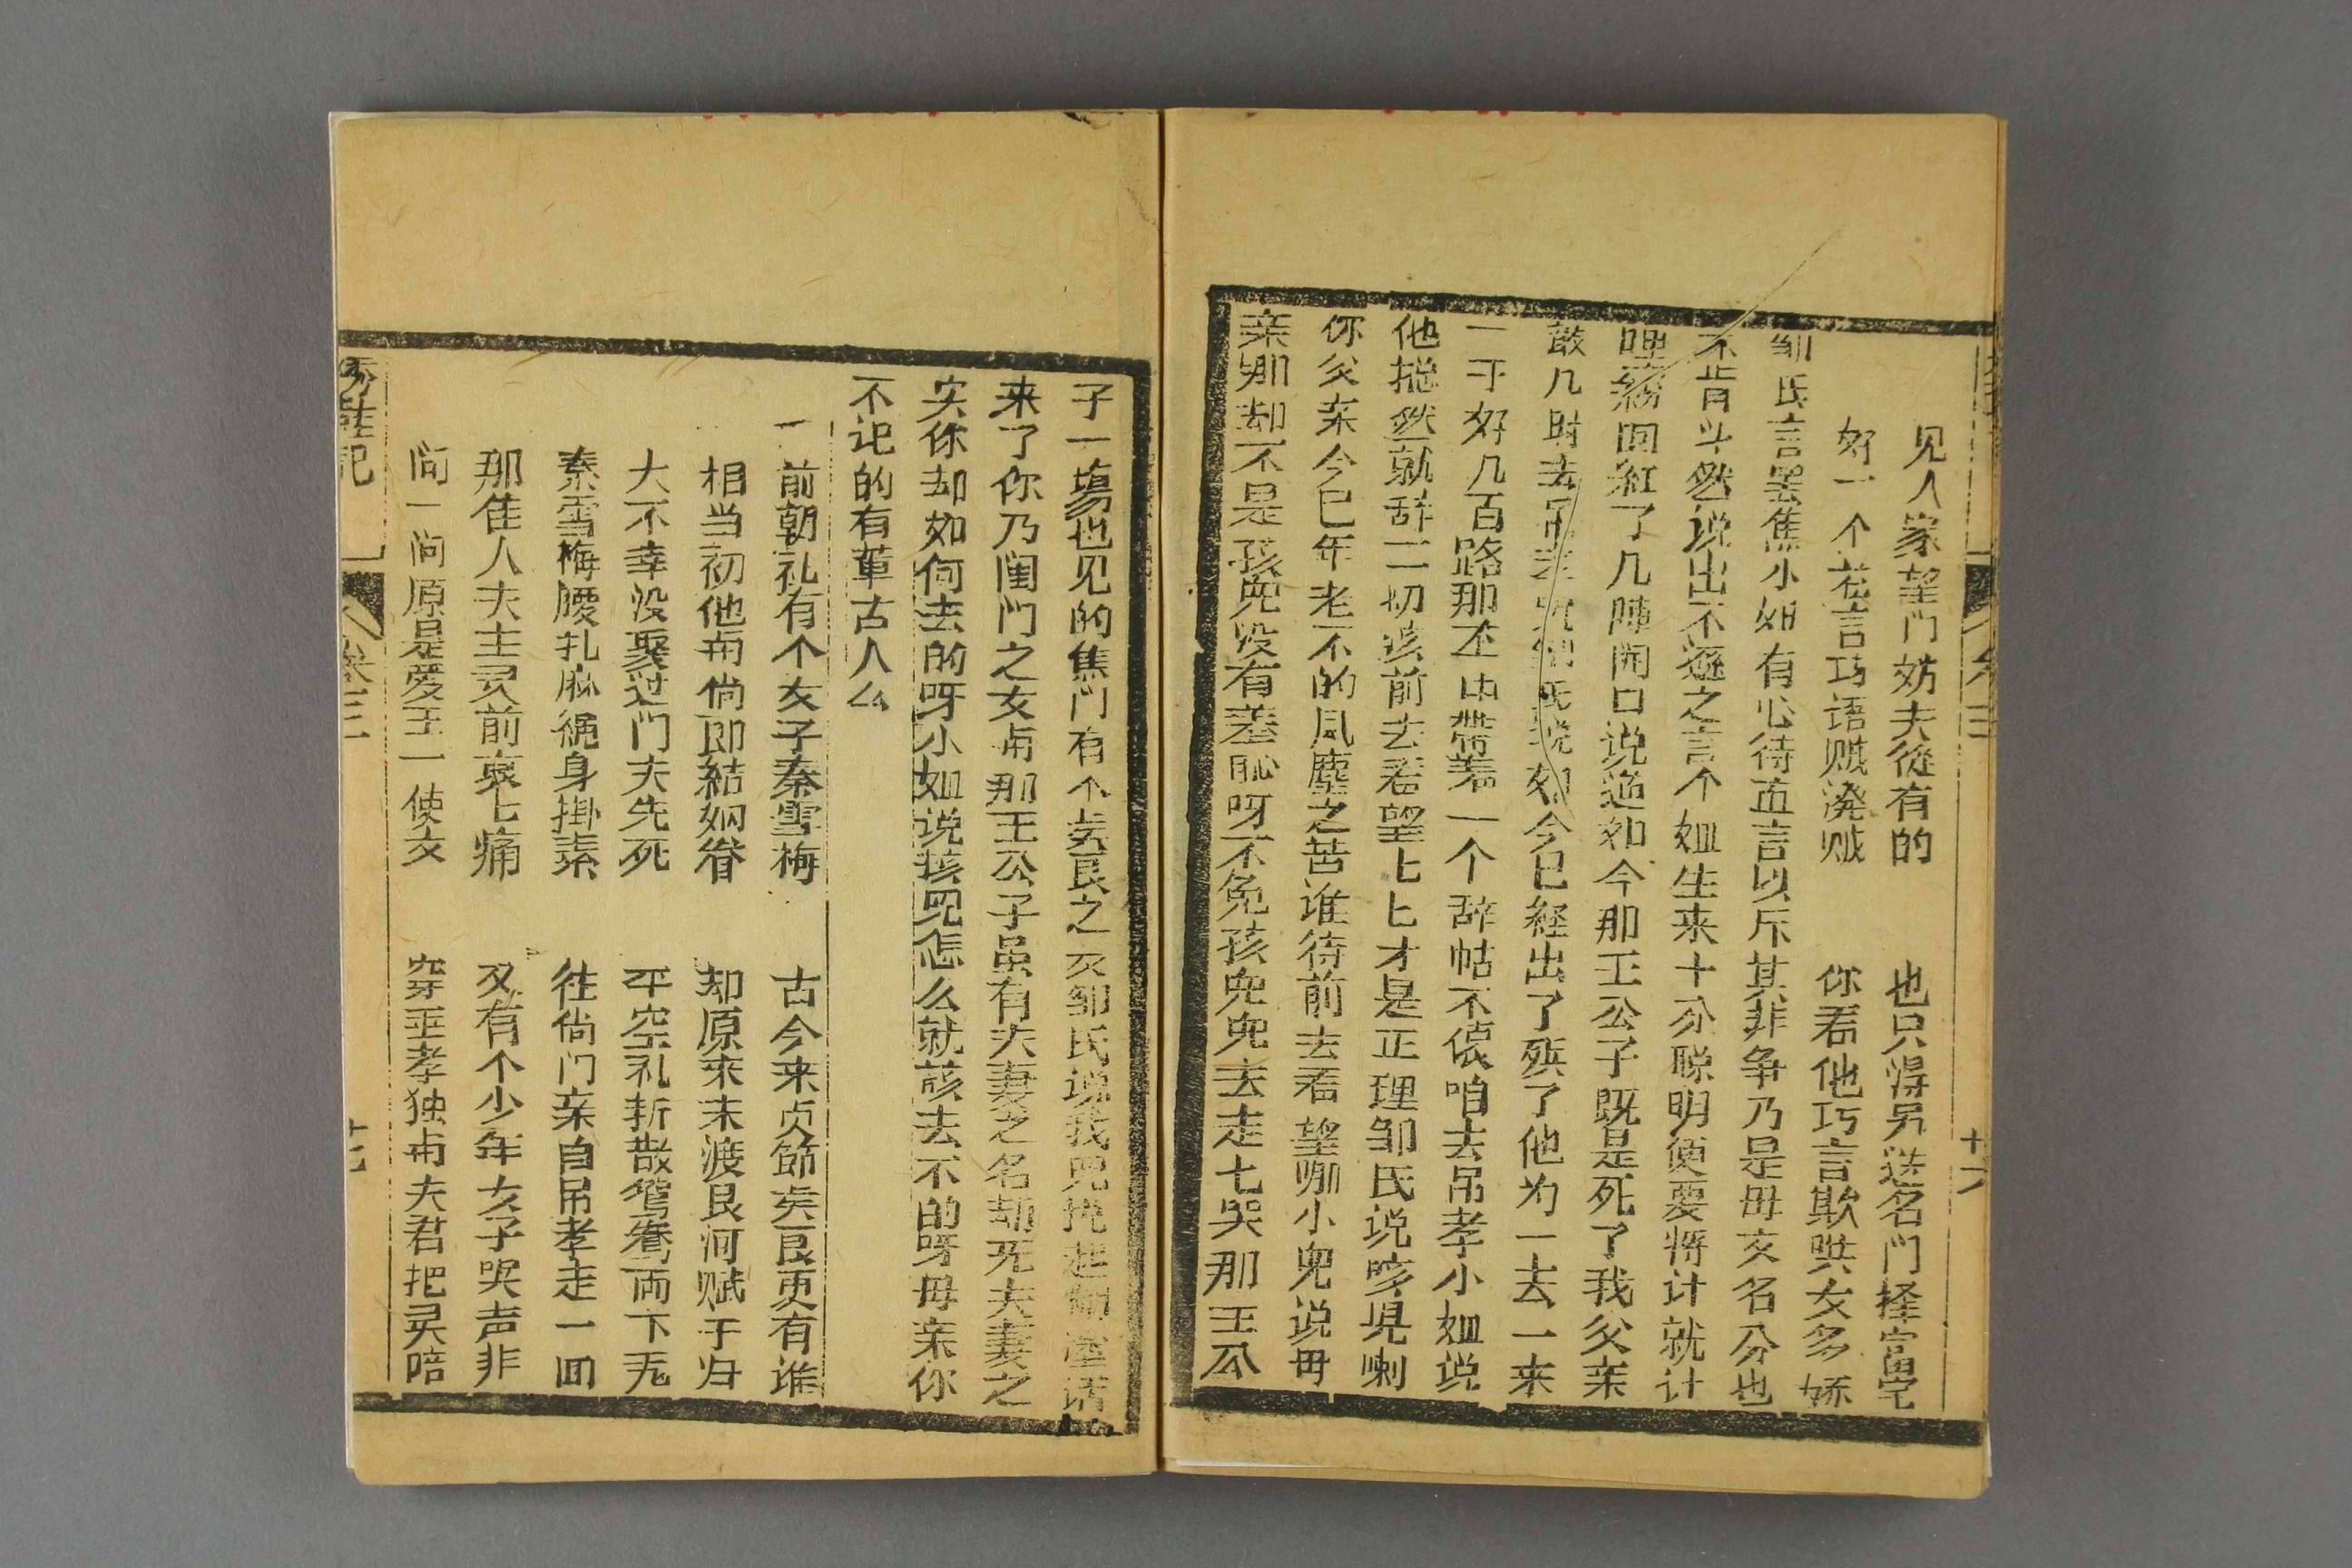 见人家望门妨夫從有的　也只得另选名门择富宅
好一个花言巧语贱泼贱　你看他巧言欺哄女多娇
邹氏言罢焦小姐有心待直言以斥其非争乃是毋女名分也
不肯斗然说出不逊之言个姐生来十分聪明便要将计就计
哩粉面紅了几陣闹口说道如今那王公子既是死了我父亲
敢几时去吊孝邹氏说如今已经出了殡了他为一去一来
一于好几百路那不由带着一个辞帖不值咱去吊孝小姐说
他揔然就辞一切该前去看望匕匕才是正理邹氏说咳児喇
你父亲今已年老不的風塵之苦谁待前去看望哪小児说毋
亲那却不是孩児没有羞恥呀不免孩児児去走七哭那王公
子一塲也见的焦门有个贤良之女邹氏说我児提起喇這话
来了你乃闺门之女甫那王公子虽有夫妻之名却旡夫妻之
实你却如何去的呀小姐说孩児怎么就該去不的呀毋亲你
不记的有輩古人么
前朝礼有个女子秦雪梅　古今来贞節贤良更有谁
相当初他甫尚郎結姻眷　却原来未渡良河赋于归
大不幸没娶过门夫先死　平空礼折散鴛鴦両下旡
秦雪梅腰扎麻繩身掛素　往尚门亲自吊孝走一回
那佳人夫主灵前哀匕痛　又有个少年女子哭声非
问一问原是爱玉一使女　穿重孝独甫夫君把灵陪
鞋记　卷三　十七
卷三　十六